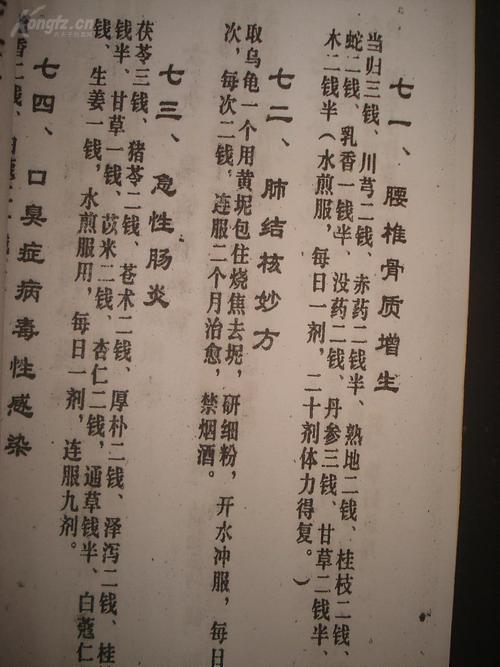 七一、腰椎骨质增生
当归三钱、川芎二钱、赤药二钱半、熟地二钱、桂枝二钱、
蛇二钱、乳香一钱半、没药二钱、丹参三钱、甘草二钱半、
木二钱半（水煎服，每日一剂，二十剂体力得复。）
七二、肺结核妙方
取乌龟一个用黄坭包住烧焦去坭，研细粉，开水冲服，每日
次，每次二钱，连服二个月治愈，禁烟酒。
七三、急性肠炎
茯苓三钱、猪苓二钱、苍术二钱、厚朴二钱、泽泻二钱、桂
钱半、甘草一钱、苡米二钱、杏仁二钱，通草钱半、白蔻仁
钱、生姜一钱，水煎服用，每日一剂，连服九剂。
七四、口臭症病毒性感染
香二钱、白蔻二钱
Kongfz.cn